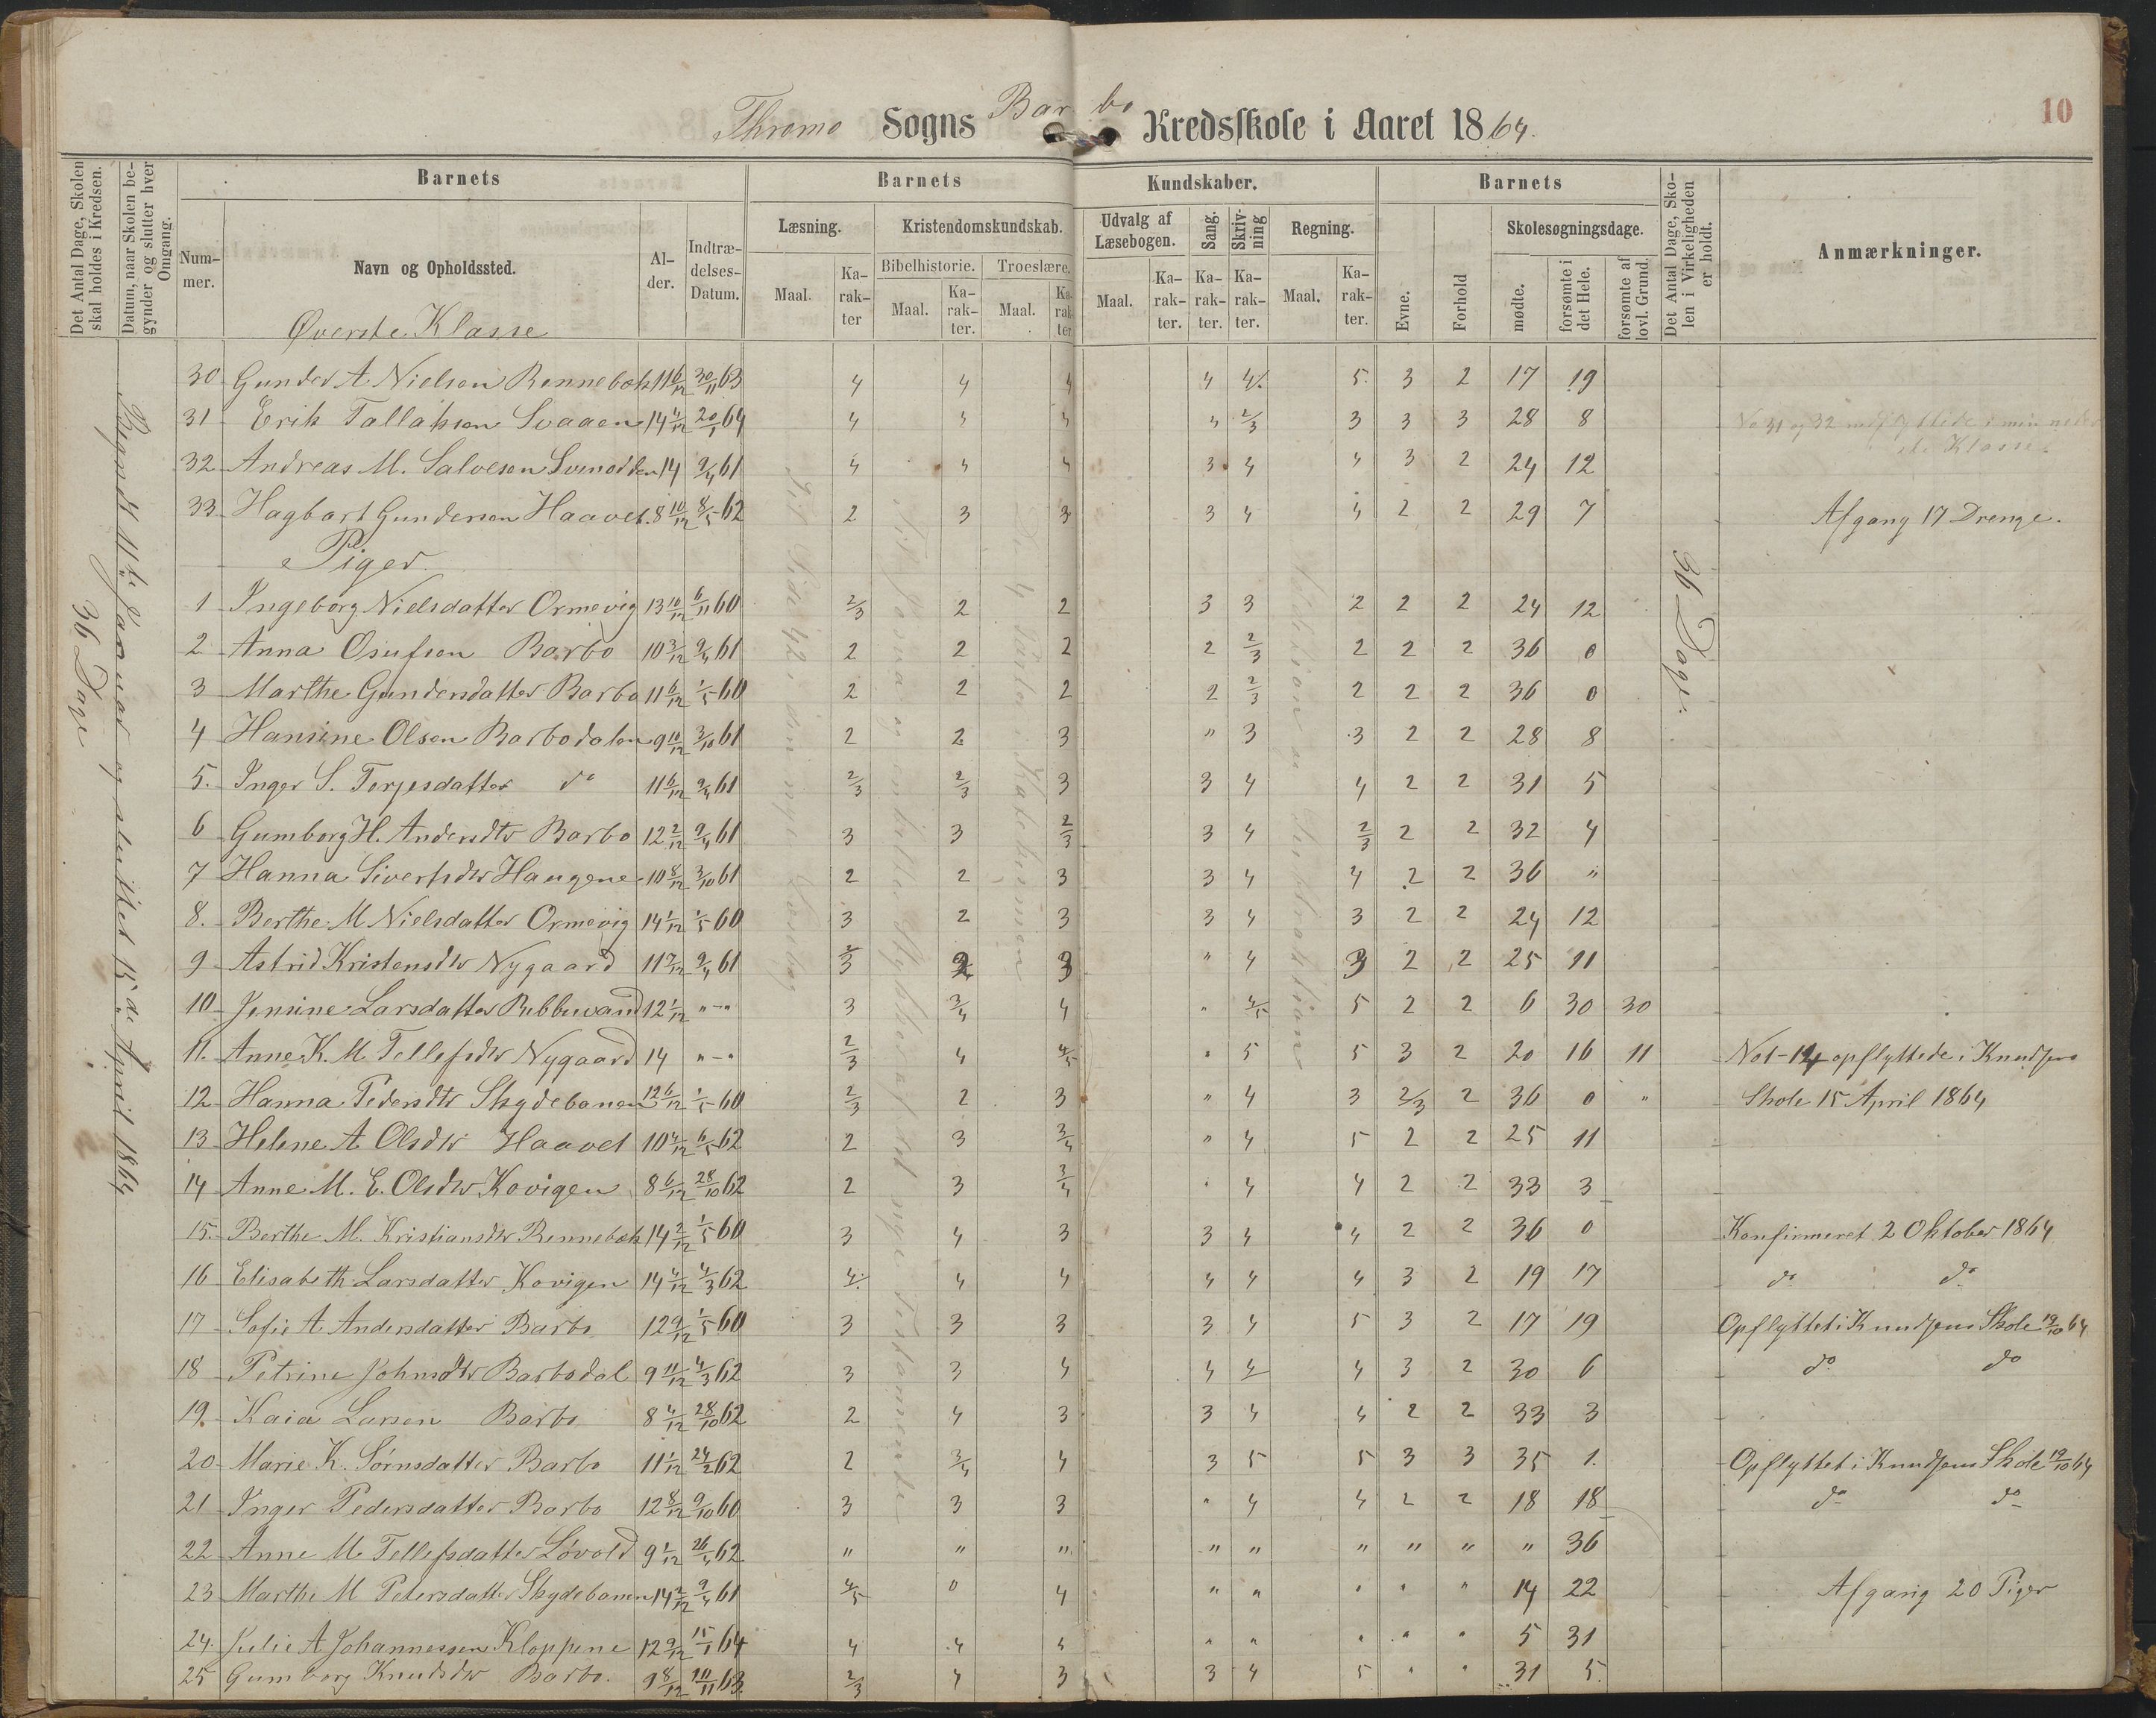 Thromo Sogns Barbo Kredsskole i Aaret 1864.
10
Det Antal Dage, Skolen skal holdes i Kredsen.
Datum, naar Skolen begynder og slutter hver Omgang.
Barnets
Barnets
Kundskaber.
Barnets
Det Antal Dage, Skolen i Virkeligheden er holdt.
Anmærkninger.
Nummer.
Navn og Opholdssted.
Alder.
Indtrædelses-Datum.
Læsning.
Kristendomskundskab.
Udvalg af Læsebogen.
Sang.
Skrivning
Regning.
Evne.
Forhold
Skolesøgningsdage.
Bibelhistorie.
Troeslære.
Maal.
Karakter
Maal.
Karakter.
Maal.
Karakter
Maal.
Karakter.
Karakter.
Karakter.
Maal.
Karakter.
mødte.
forsømte i det Hele.
forsømte af lovl. Grund.
Øverste Klasse
36 Dage
Begyndt 11te Januar og sluttet 15de April 1864
36 Dage.
30 Gunder A. Nielsen Rennebæk 11 6/12 30/11 63 4 4 4 4 4 5 3 2 17 19
31 Erik Tallaksen Svaaen 14 4/12 20/1 64 4 4 4 4 2/3 3 3 3 28 8
32 Andreas M. Salvesen 14 9/4 61 4 4 4 3 4 4 3 2 24 12
33 Hagbart Gundersen Haavet 8 10/12 8/5 62 2 3 3 3 4 4 2 2 29 7 Afgang 17 Drenge.
Piger
1 Ingeborg Nielsdatter Ormevig 13 10/12 6/11 60 2/3 2 2 3 3 2 2 2 24 12
2 Anna Osufsen Barbo 10 3/12 9/4 61 2 2 2 2 2/3 2 2 2 36 0
3 Marthe Gundersdatter Barbo 11 6/12 1/5 60 2 2 2 2 2/3 2 2 2 36 0
4 Hansine Olsen Barbodalen 9 10/12 3/10 61 2 2 3 " 3 3 2 2 28 8
5. Inger S. Terjesdatter do 11 6/12 9/4 61 2/3 2/3 3 3 4 4 2 2 31 5
6 Gumborg H. Andersdtr Barbo 12 2/12 9/4 61 3 3 2/3 3 4 2/3 2 2 32 4
7 Hanna Sivertsdtr Haugene 10 8/12 3/10 61 2 2 3 3 4 4 2 2 36 "
8. Berthe M Nielsdatter Ormevig 14 1/12 1/5 60 3 2 3 3 4 3 2 2 24 12
9 Astrid Kristensdtr Nygaard 11 9/12 9/4 61 2/3 2 3 " 4 3 2 2 25 11
10 Jensine Larsdatter 12 1/12 "-" 3 3/4 4 " 4/5 5 2 2 6 30 30
11. Anne K. M Tellefsdtr Nygaard 14 "-" 2/3 4 4/5 " 5 5 3 2 20 16 11 No 1-14 opflyttede i Knudsens
12 Hanna Pedersdtr Skydebanen 12 6/12 1/5 60 2/3 2 3 " 4 3 2/3 2 36 0 " Skole 15 April 1864
13 Helene A Olsdtr Haavet 10 4/12 6/5 62 2 3 3/4 " 4 5 2 2 25 11
14 Anne M. E. Olsdtr Kovigen 8 6/12 28/10 62 2 3 3/4 " 4 4 2 2 33 3
15. Berthe M. Kristiansdtr Rennebæk 14 2/12 1/5 60 3 4 3 3 4 4 2 2 36 0 Konfirmeret 2 Oktober 1864
16 Elisabeth Larsdatter Kovigen 14 4/12 4/3 62 4 4 4 4 4 4 3 2 19 17 do do
17 Sofie A Andersdatter Barbo 12 9/12 1/5 60 3 3 3 3 4 5 3 2 17 19 Opflyttet i Knudsens Skole 19/10 64
18 Petrine Johnsdtr Barbodal 9 11/12 4/3 62 3 3 4 4 4 4 3 2 30 6 do do
19. Kaia Larsen Barbo 8 4/12 28/10 62 2 4 3 3 4 4 2 2 33 3
20 Marie K. Sørnsdatter Barbo 11 1/12 24/2 62 2 3/4 4 3 5 5 3 3 35 1. Opflyttet i Knudsens Skole 19/10 64
21 Inger Pedersdatter Barbo 12 8/12 9/10 60 3 3 3 " 4 4 2 2 18 18 do do
22 Anne M. Tellefsdatter Løvold 9 1/12 26/4 62 " " " " " " " " " 36
23 Marthe M Petersdatter Skydebanen 14 2/12 9/4 61 4/5 0 4 " " " " " 14 22 Afgang 20 Piger
24. Julie A Johannessen Kloppene 12 9/12 15/1 64 4 4 4 " " " " " 5 31
25 Gumborg Knudsdtr Barbo. 9 8/12 10/11 63. 2/3 4 3 3 4 5 " " 31 5.